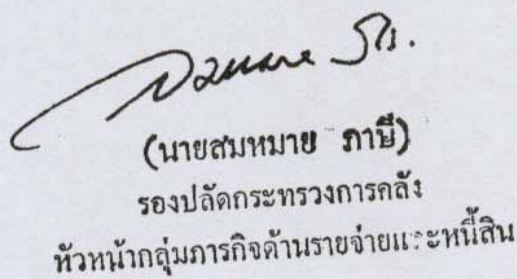 (นายสมหมาย ภาษี)
รองปลัดกระทรวงการคลัง
หัวหน้ากลุ่มภารกิจด้านรายจ่ายและหนี้สิน